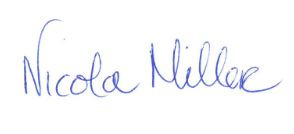 Nicola Miller